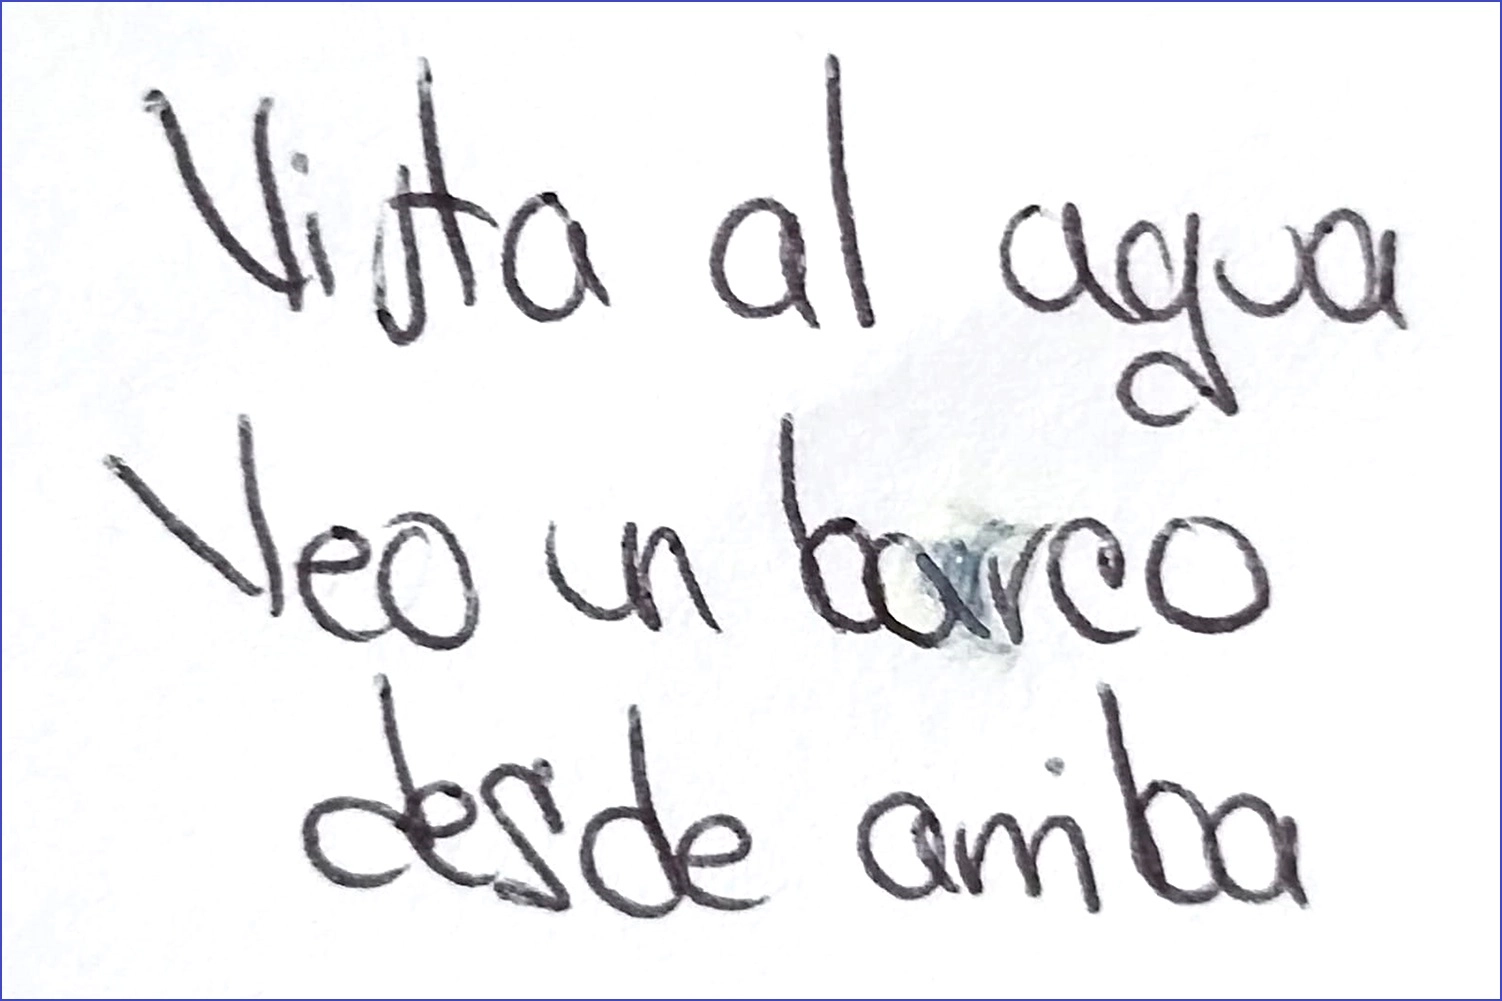 Vista al agua
Veo un barco
desde arriba